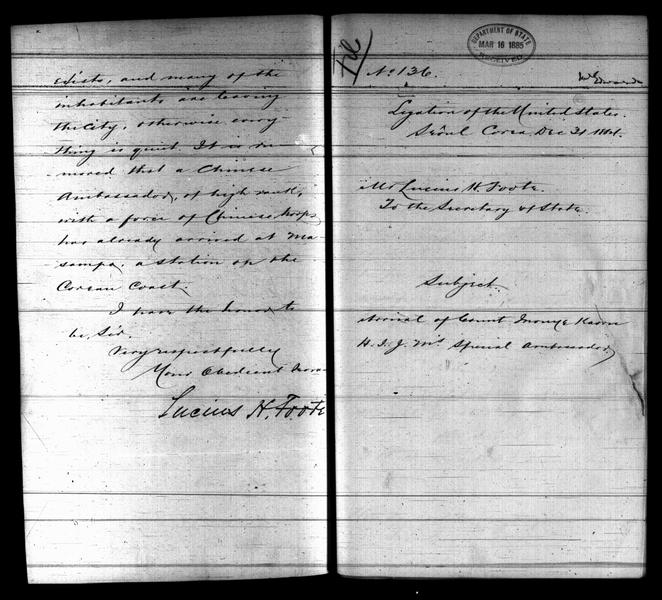 exists, and many of the
inhabitants are leaving
the City, otherwise every-
thing is quiet. It is ru-
mored that a Chinese
Ambassador, of high rank,
with a force of Chinese troops
has already arrived at Ma-
sampo, a station on the
Corean Coast.
I have the honor to
be, Sir,
Very respectfully
Your Obedient
Lucius H. Foote
File
DEPARTMENT OF STATE
MAR 16 1885
RECEIVED
No 136.
Legation of the United States.
Sèoul Corea, Dec 31 1884.
Mr Lucius H. Foote.
To the Secretary of State.
Subject.
Arrival of Count Inouye Kaoru
H. I. J. M's Special Ambassador